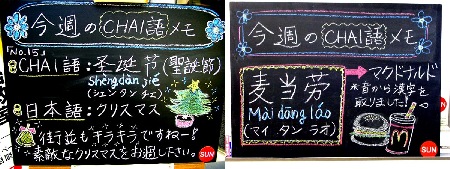 今週のCHAI語メモ
No.151
CHAI語:圣诞节(聖誕節)
Shèngdàn jié
(シェンタンチェ)
日本語:クリスマス
街並もキラキラですねー!
素敵なクリスマスをお過し下さい。
SUN
今週のCHAI語メモ
麦当劳
Mài dāng láo
(マイ タン ラオ)
マクドナルド
本音から漢字を
取りました!
SUN